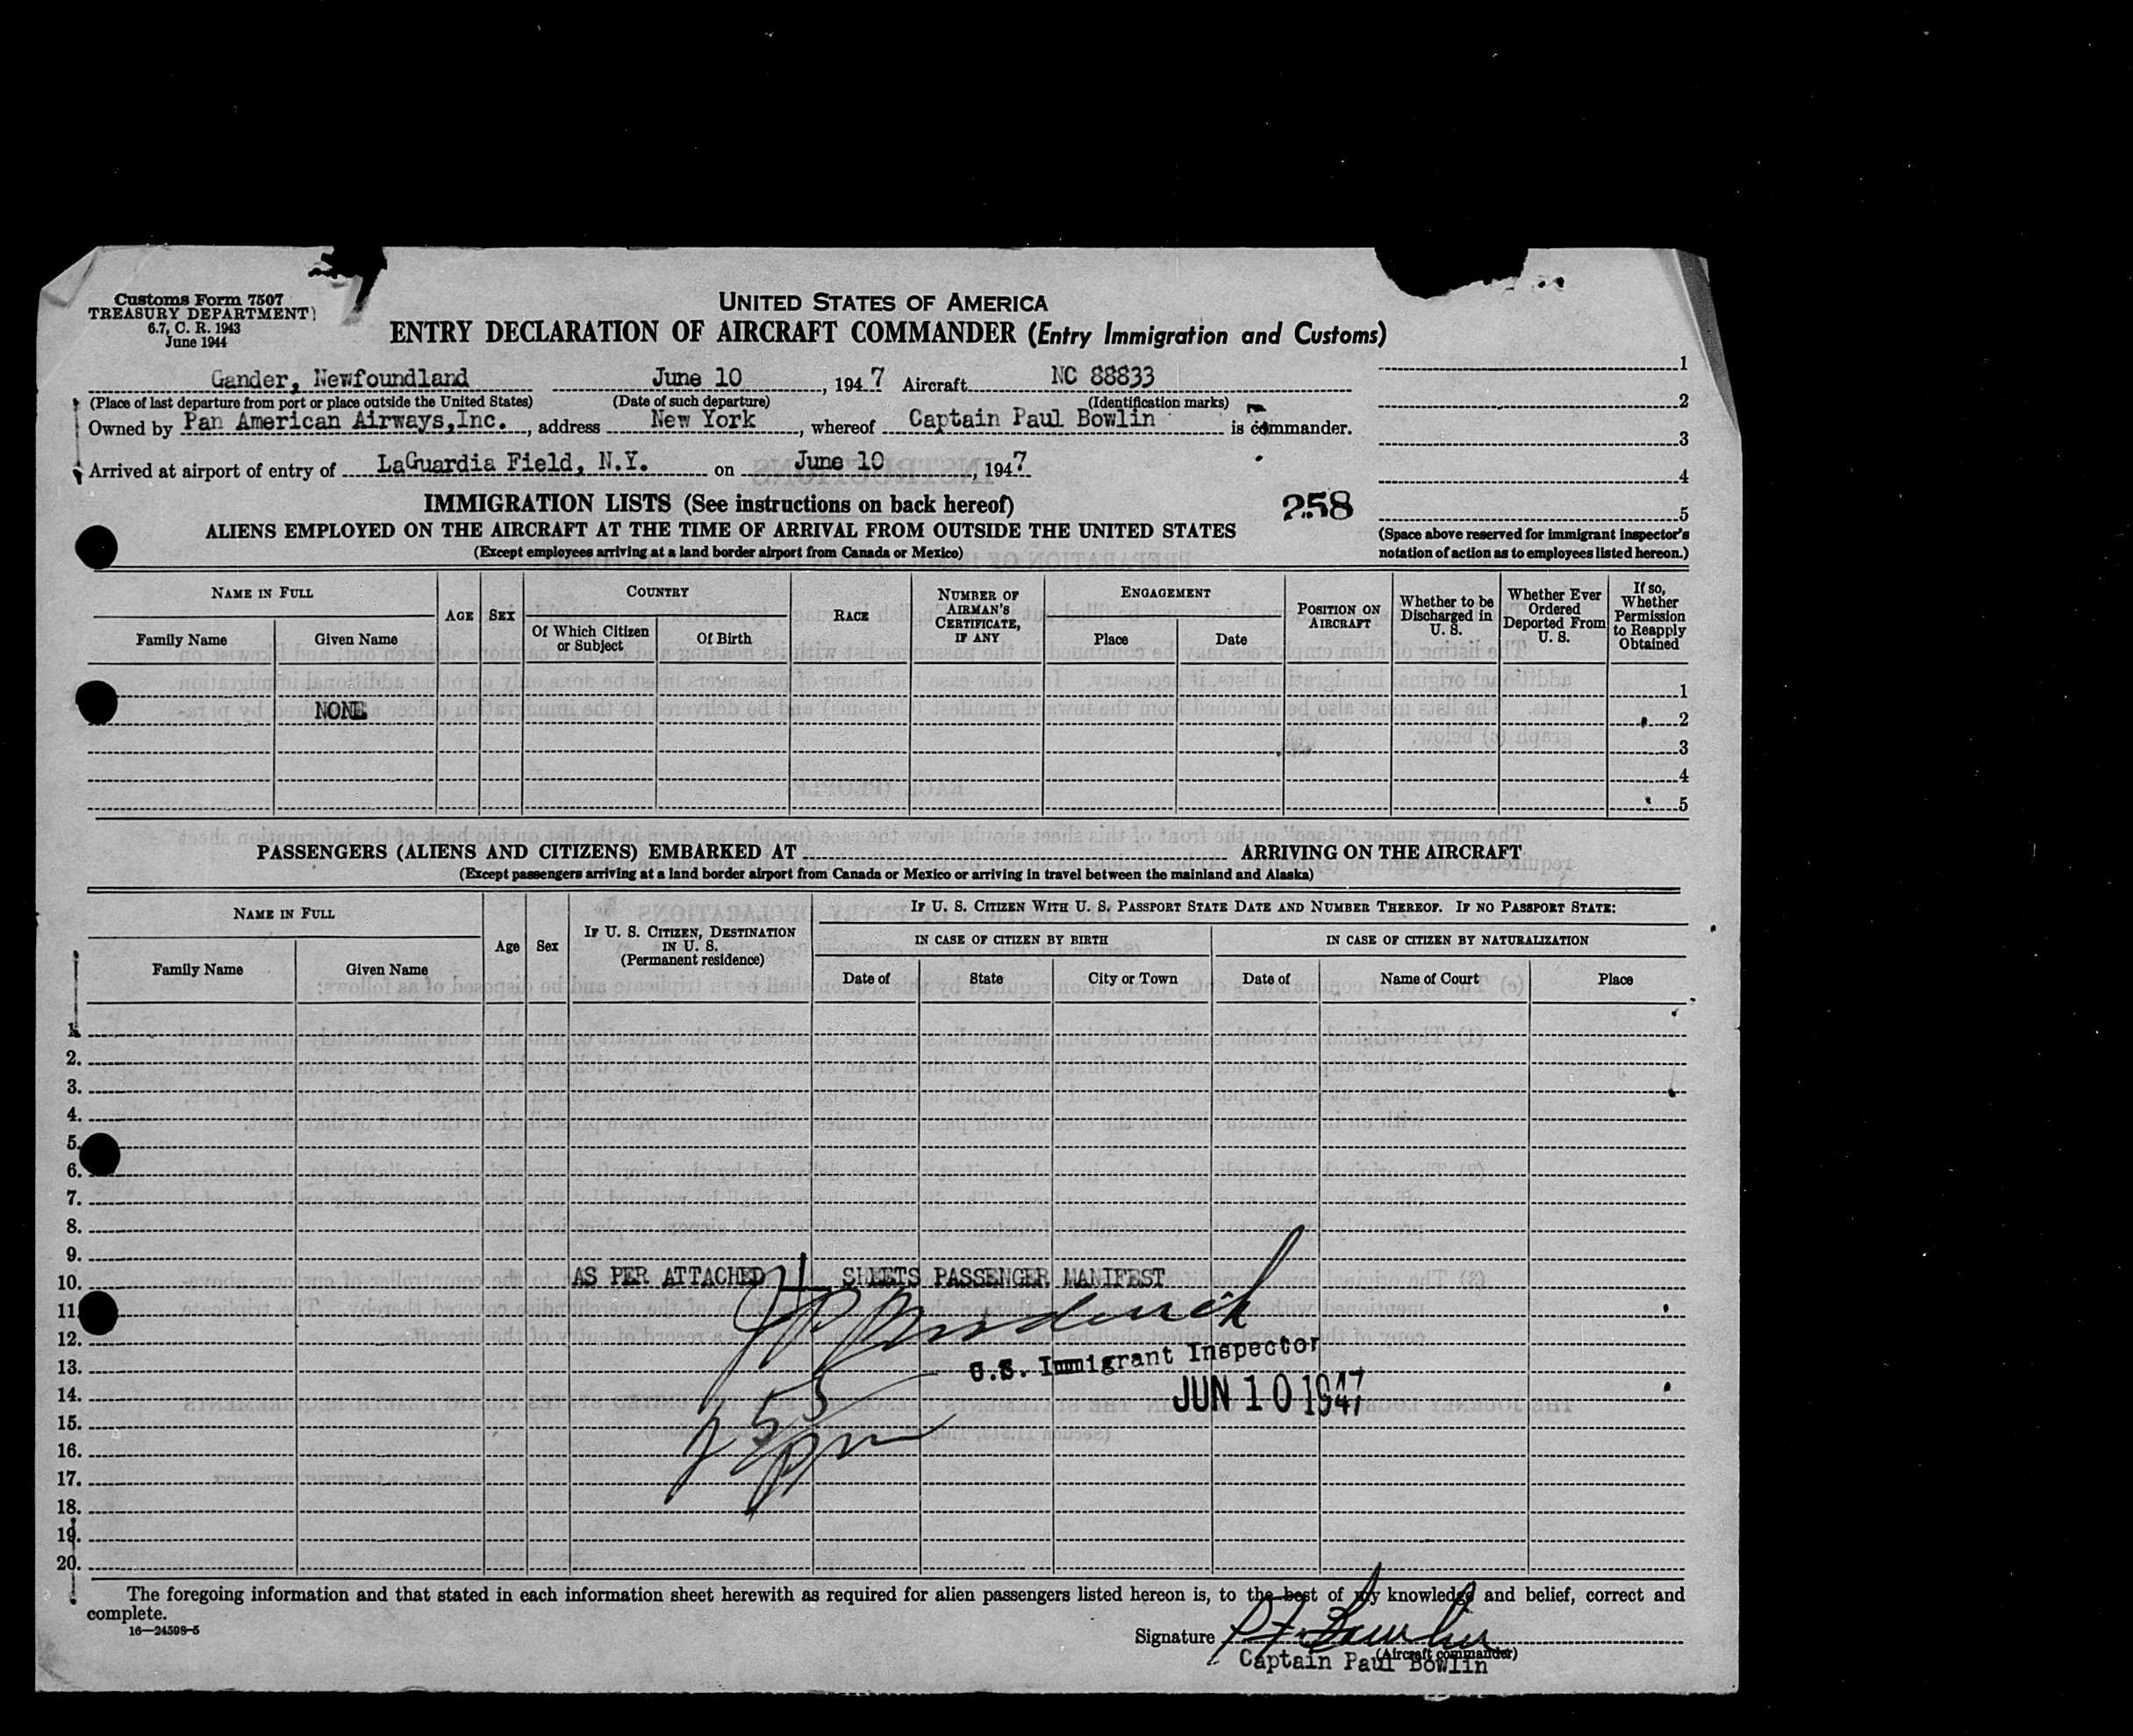 Customs Form 7507
TREASURY DEPARTMENT
6.7, C. R. 1943
June 1944
UNITED STATES OF AMERICA
ENTRY DECLARATION OF AIRCRAFT COMMANDER (Entry Immigration and Customs)
Gander, Newfoundland June 10, 1947 Aircraft NC 88833
(Place of last departure from port or place outside the United States) (Date of such departure) (Identification marks)
Owned by Pan American Airways,Inc., address New York, whereof Captain Paul Bowlin is commander.
Arrived at airport of entry of LaGuardia Field, N.Y. on June 10, 1947
1
2
3
4
5
(Space above reserved for immigrant inspector's
notation of action as to employees listed hereon.)
IMMIGRATION LISTS (See instructions on back hereof) 258
ALIENS EMPLOYED ON THE AIRCRAFT AT THE TIME OF ARRIVAL FROM OUTSIDE THE UNITED STATES
(Except employees arriving at a land border airport from Canada or Mexico)
NAME IN FULL
Family Name Given Name
AGE
SEX
COUNTRY
Of Which Citizen or Subject
Of Birth
RACE
NUMBER OF AIRMAN'S CERTIFICATE, IF ANY
ENGAGEMENT
Place Date
POSITION ON AIRCRAFT
Whether to be Discharged in U. S.
Whether Ever Ordered Deported From U. S.
If so, Whether Permission to Reapply Obtained
1
NONE 2
3
4
5
PASSENGERS (ALIENS AND CITIZENS) EMBARKED AT ARRIVING ON THE AIRCRAFT
(Except passengers arriving at a land border airport from Canada or Mexico or arriving in travel between the mainland and Alaska)
NAME IN FULL
Family Name Given Name
Age
Sex
IF U. S. CITIZEN, DESTINATION IN U. S.
(Permanent residence)
IF U. S. CITIZEN WITH U. S. PASSPORT STATE DATE AND NUMBER THEREOF. IF NO PASSPORT STATE:
IN CASE OF CITIZEN BY BIRTH IN CASE OF CITIZEN BY NATURALIZATION
Date of State City or Town Date of Name of Court Place
1.
2.
3.
4.
5.
6.
7.
8.
9.
10. AS PER ATTACHED 4 SHEETS PASSENGER MANIFEST
11.
12.
13. U.S. Immigrant Inspector
14. JUN 10 1947
15.
16.
17.
18.
19.
20.
The foregoing information and that stated in each information sheet herewith as required for alien passengers listed hereon is, to the best of my knowledge and belief, correct and
complete.
16—24598-5
Signature P F Bowlin
(Aircraft commander)
Captain Paul Bowlin